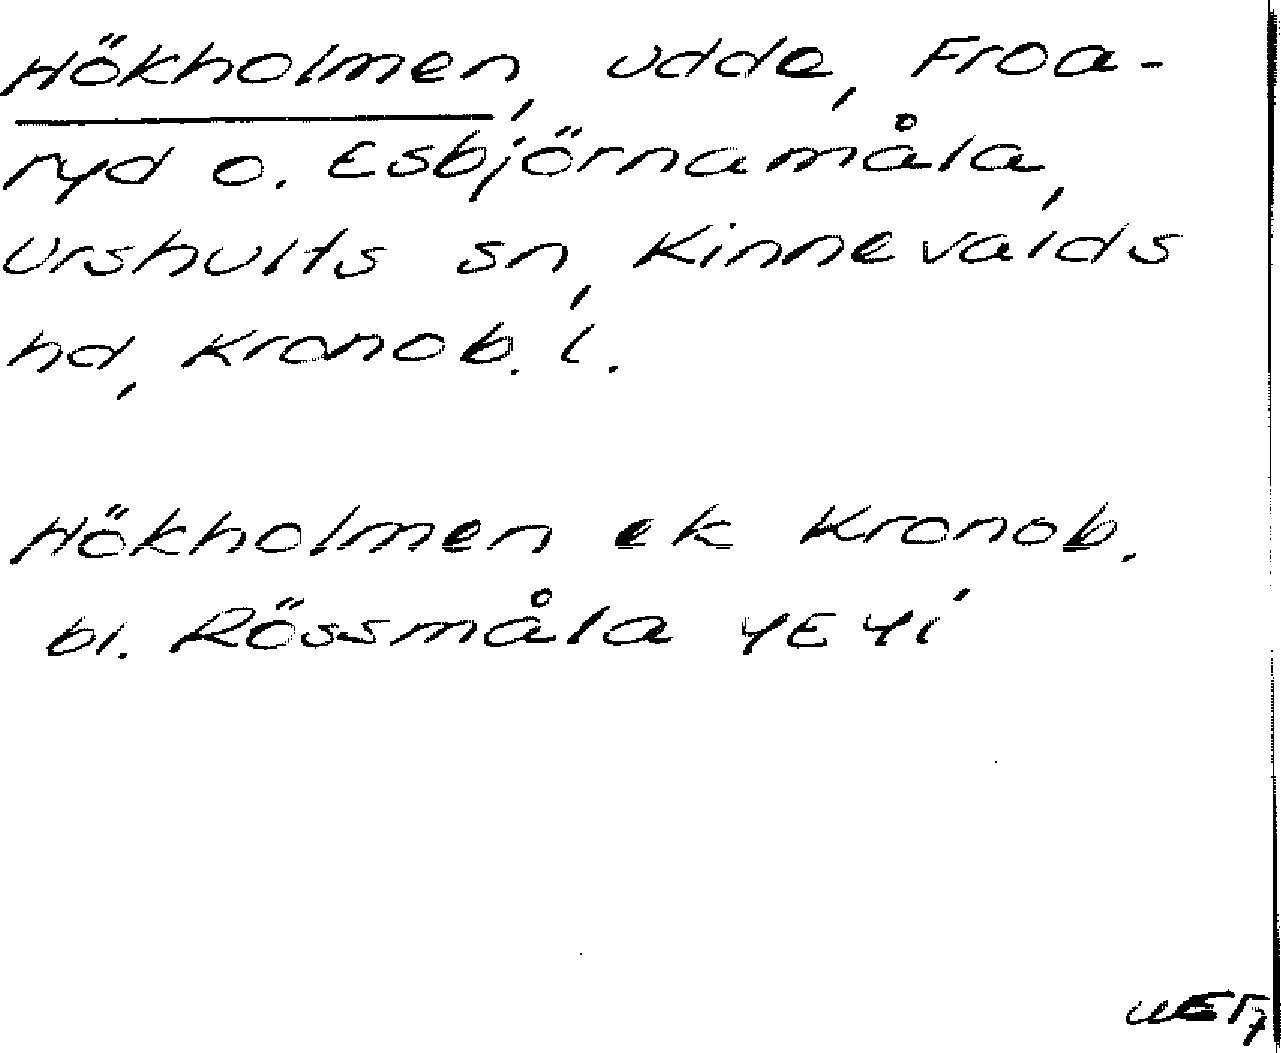 Hökholmen, udde, Froa-
ryd o. Esbjörnamåla,
Urshults sn, Kinnevalds
hd, Kronob. l.
Hökholmen ek Kronob.
bl. Rössmåla 4E 4i